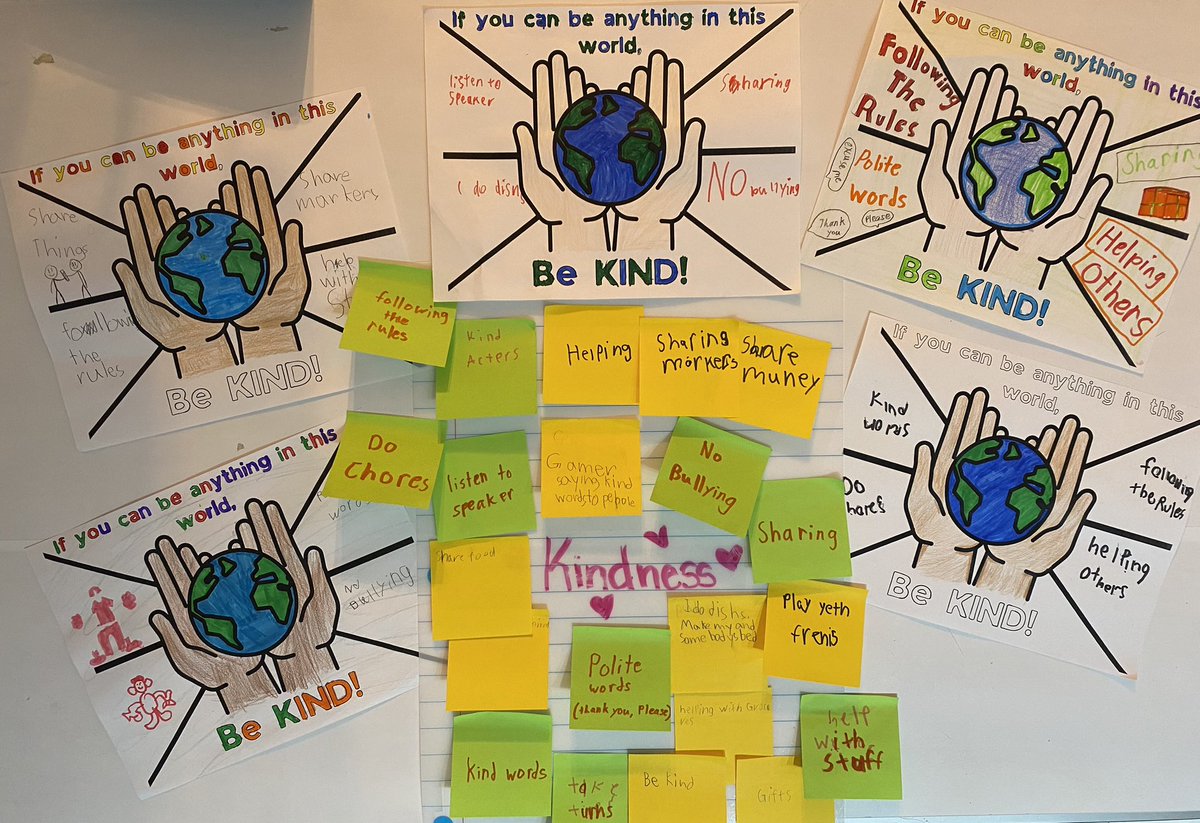 If you can be anything in this
world,
listen to
speaker
Sharing
I do dish
No bullying
Be KIND!
If you can be anything in this
world,
Following
The
Rules
excuse me
Polite
words
Thank
you
Please
Sharing
Helping
Others
Be KIND!
If you can be anything in this
world,
Share
Things
Share
markers
following
the
rules
help
with
Be KIND!
If you can be anything in this
world,
words
No
Bullying
Be KIND!
If you can be anything in this
world,
Kind
words
Do
following
the Rules
helping
others
Be KIND!
following
the
rules
Kind
Acters
Helping
Sharing
morkers
Share
muney
Do
Chores
listen to
speaker
Gamer
saying kind
words to pepole
No
Bullying
Sharing
Share food
Kindness
I do dishs.
Make my and
some bodys bed
Play yeth
frenis
Polite
words
(thank you, Please)
helping with
help
with
stuff
Kind words
take
turns
Be Kind
Gifts